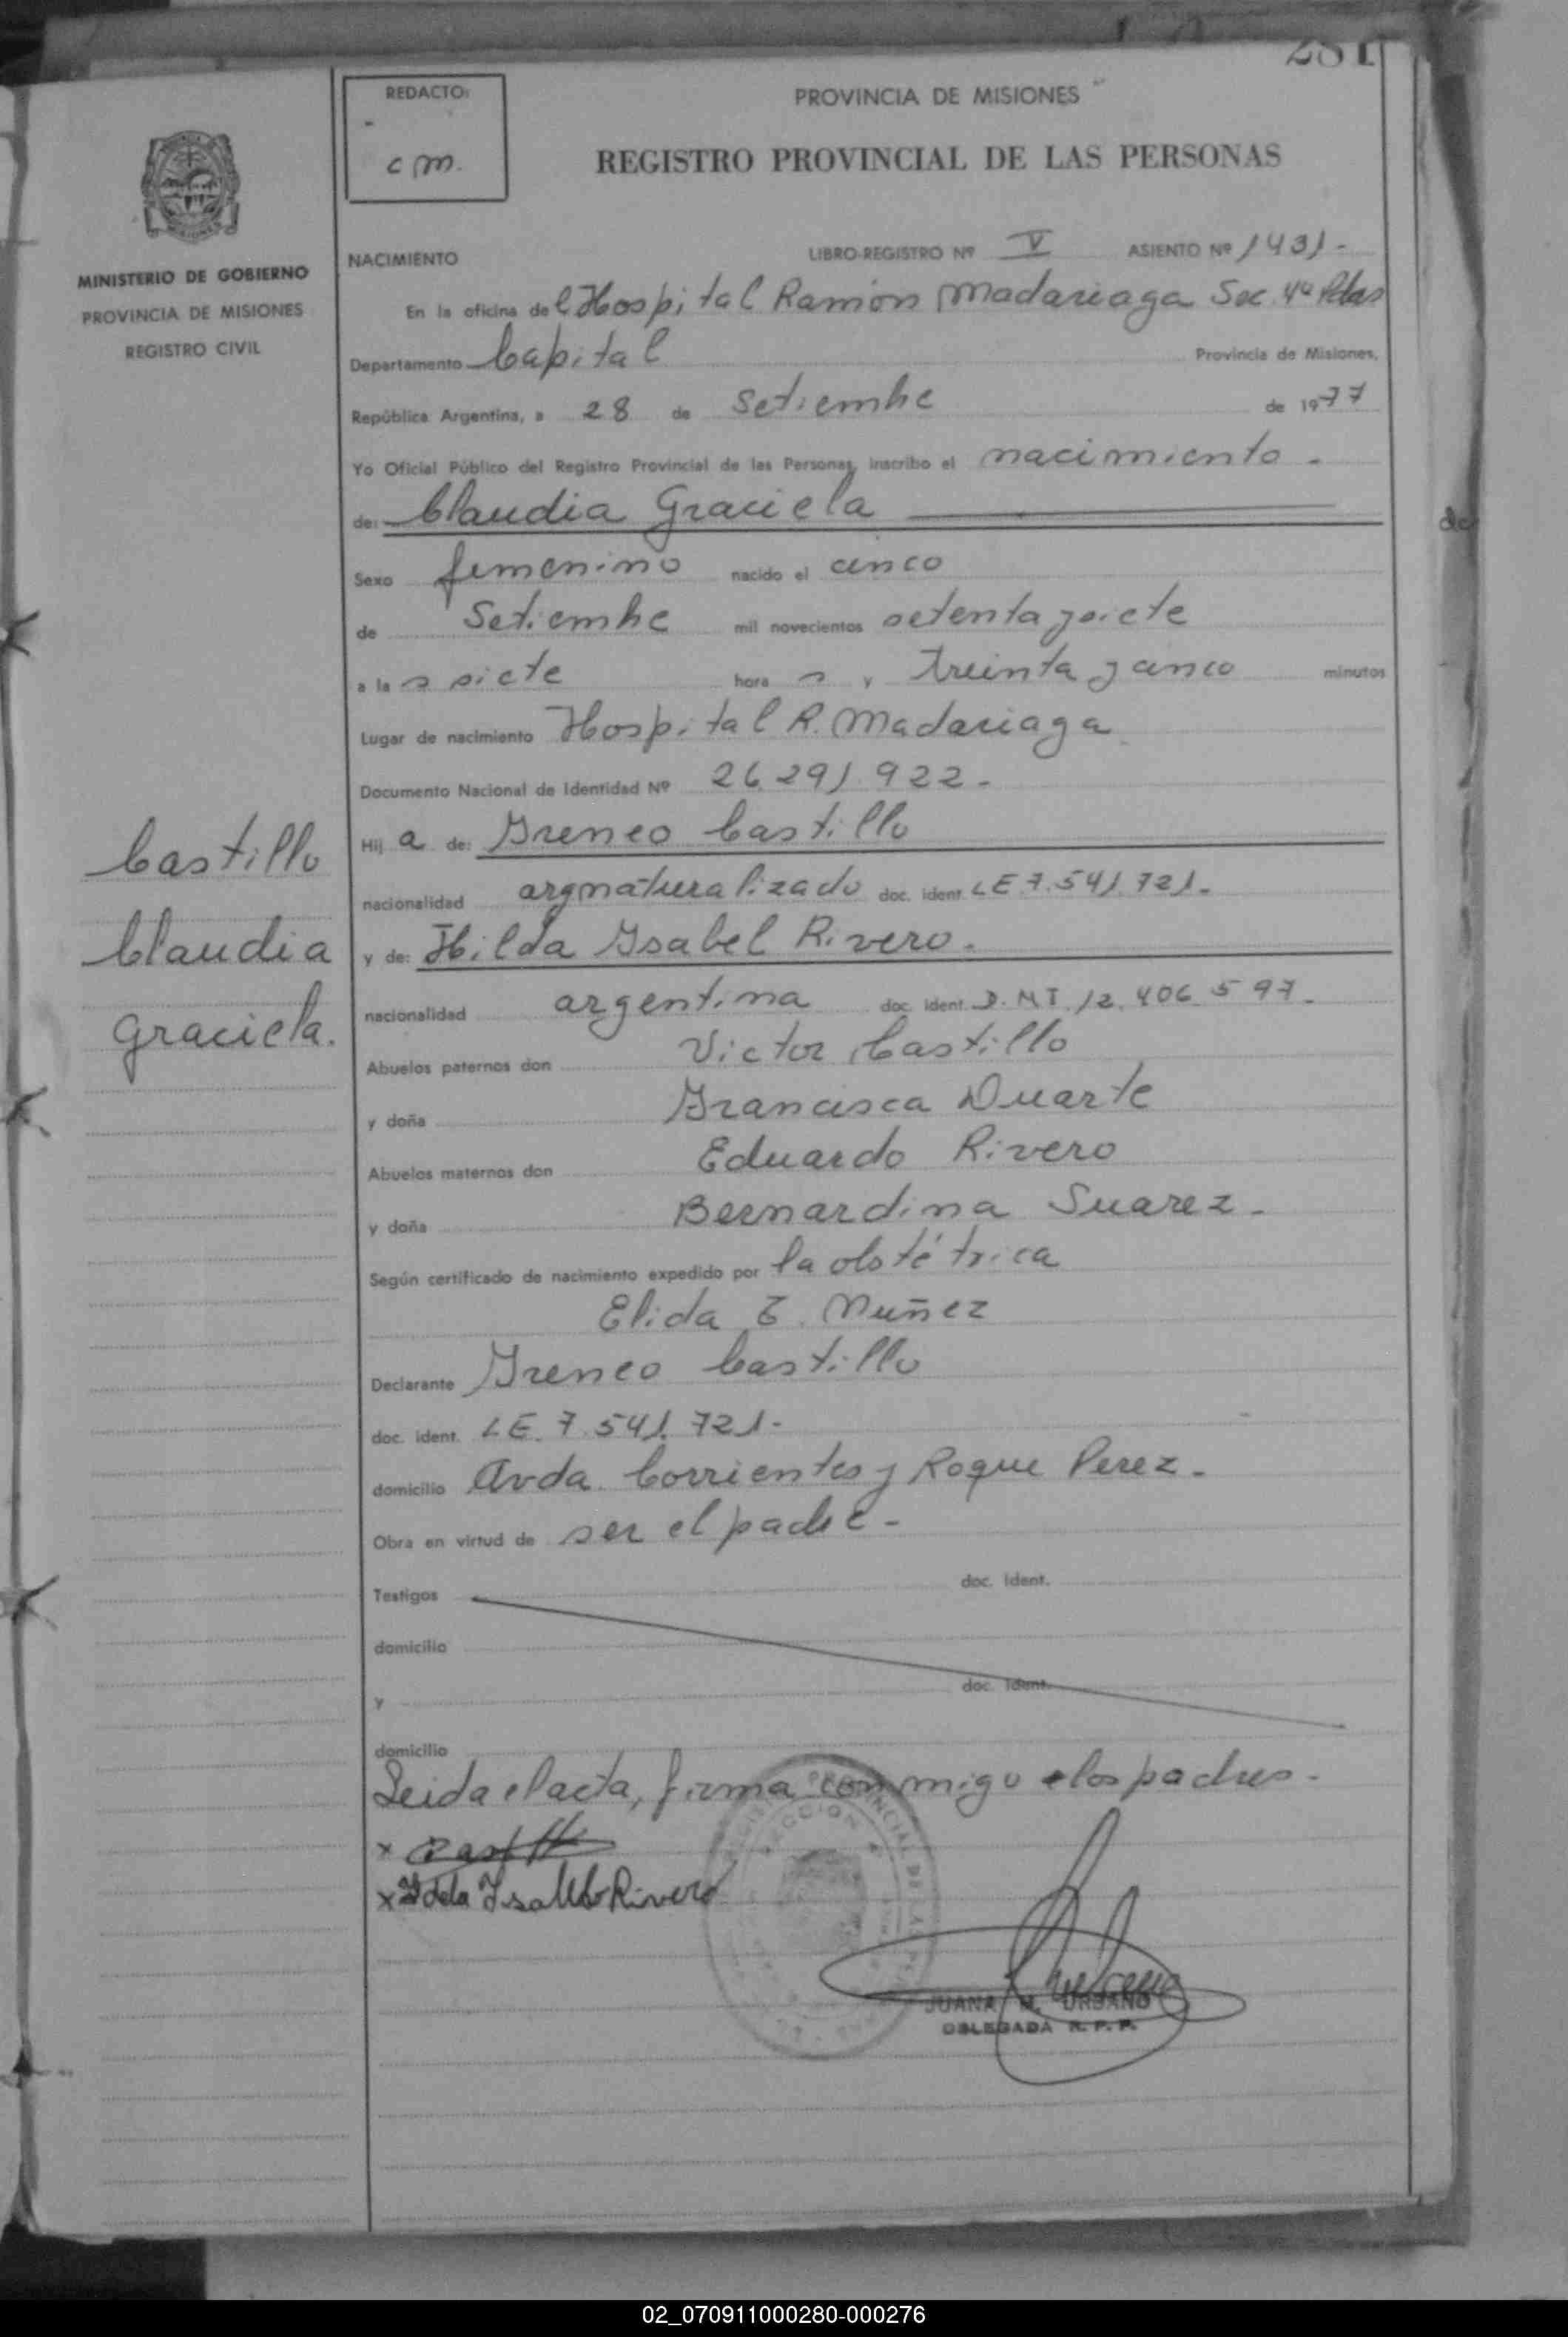 281
REDACTO:
c m.
PROVINCIA DE MISIONES
REGISTRO PROVINCIAL DE LAS PERSONAS
MINISTERIO DE GOBIERNO
PROVINCIA DE MISIONES
REGISTRO CIVIL
NACIMIENTO LIBRO-REGISTRO Nº V ASIENTO Nº 1431-
En la oficina del Hospital Ramón Madariaga Sec. 4ª Pdas
Departamento Capital Provincia de Misiones,
República Argentina, a 28 de Setiembre de 1977
Yo Oficial Público del Registro Provincial de las Personas, inscribo el nacimiento.
de: Claudia Graciela
Sexo femenino nacido el cinco
de Setiembre mil novecientos setenta y siete
a la s siete hora s y treinta y cinco minutos
Lugar de nacimiento Hospital R. Madariaga
Documento Nacional de Identidad Nº 26.291.922-
Hij a de: Ireneo Castillo
nacionalidad arg naturalizado doc. ident. LE 7.541.721-
y de: Hilda Isabel Rivero.
nacionalidad argentina doc. ident. D.N.I. 12.406.597-
Abuelos paternos don Victor Castillo
y doña Francisca Duarte
Abuelos maternos don Eduardo Rivero
y doña Bernardina Suarez-
Según certificado de nacimiento expedido por la obstétrica
Elida E. Nuñez
Declarante Ireneo Castillo
doc. ident. LE. 7.541.721-
domicilio Avda. Corrientes y Roque Perez-
Obra en virtud de ser el padre-
Testigos doc. Ident.
domicilio
y doc. Ident.
domicilio
Leida el acta, firma conmigo los padres-
x
x Isabel Rivero
JUANA M. URBANO
DELEGADA R. P. P.
Castillo
Claudia
Graciela.
de
02_070911000280-000276